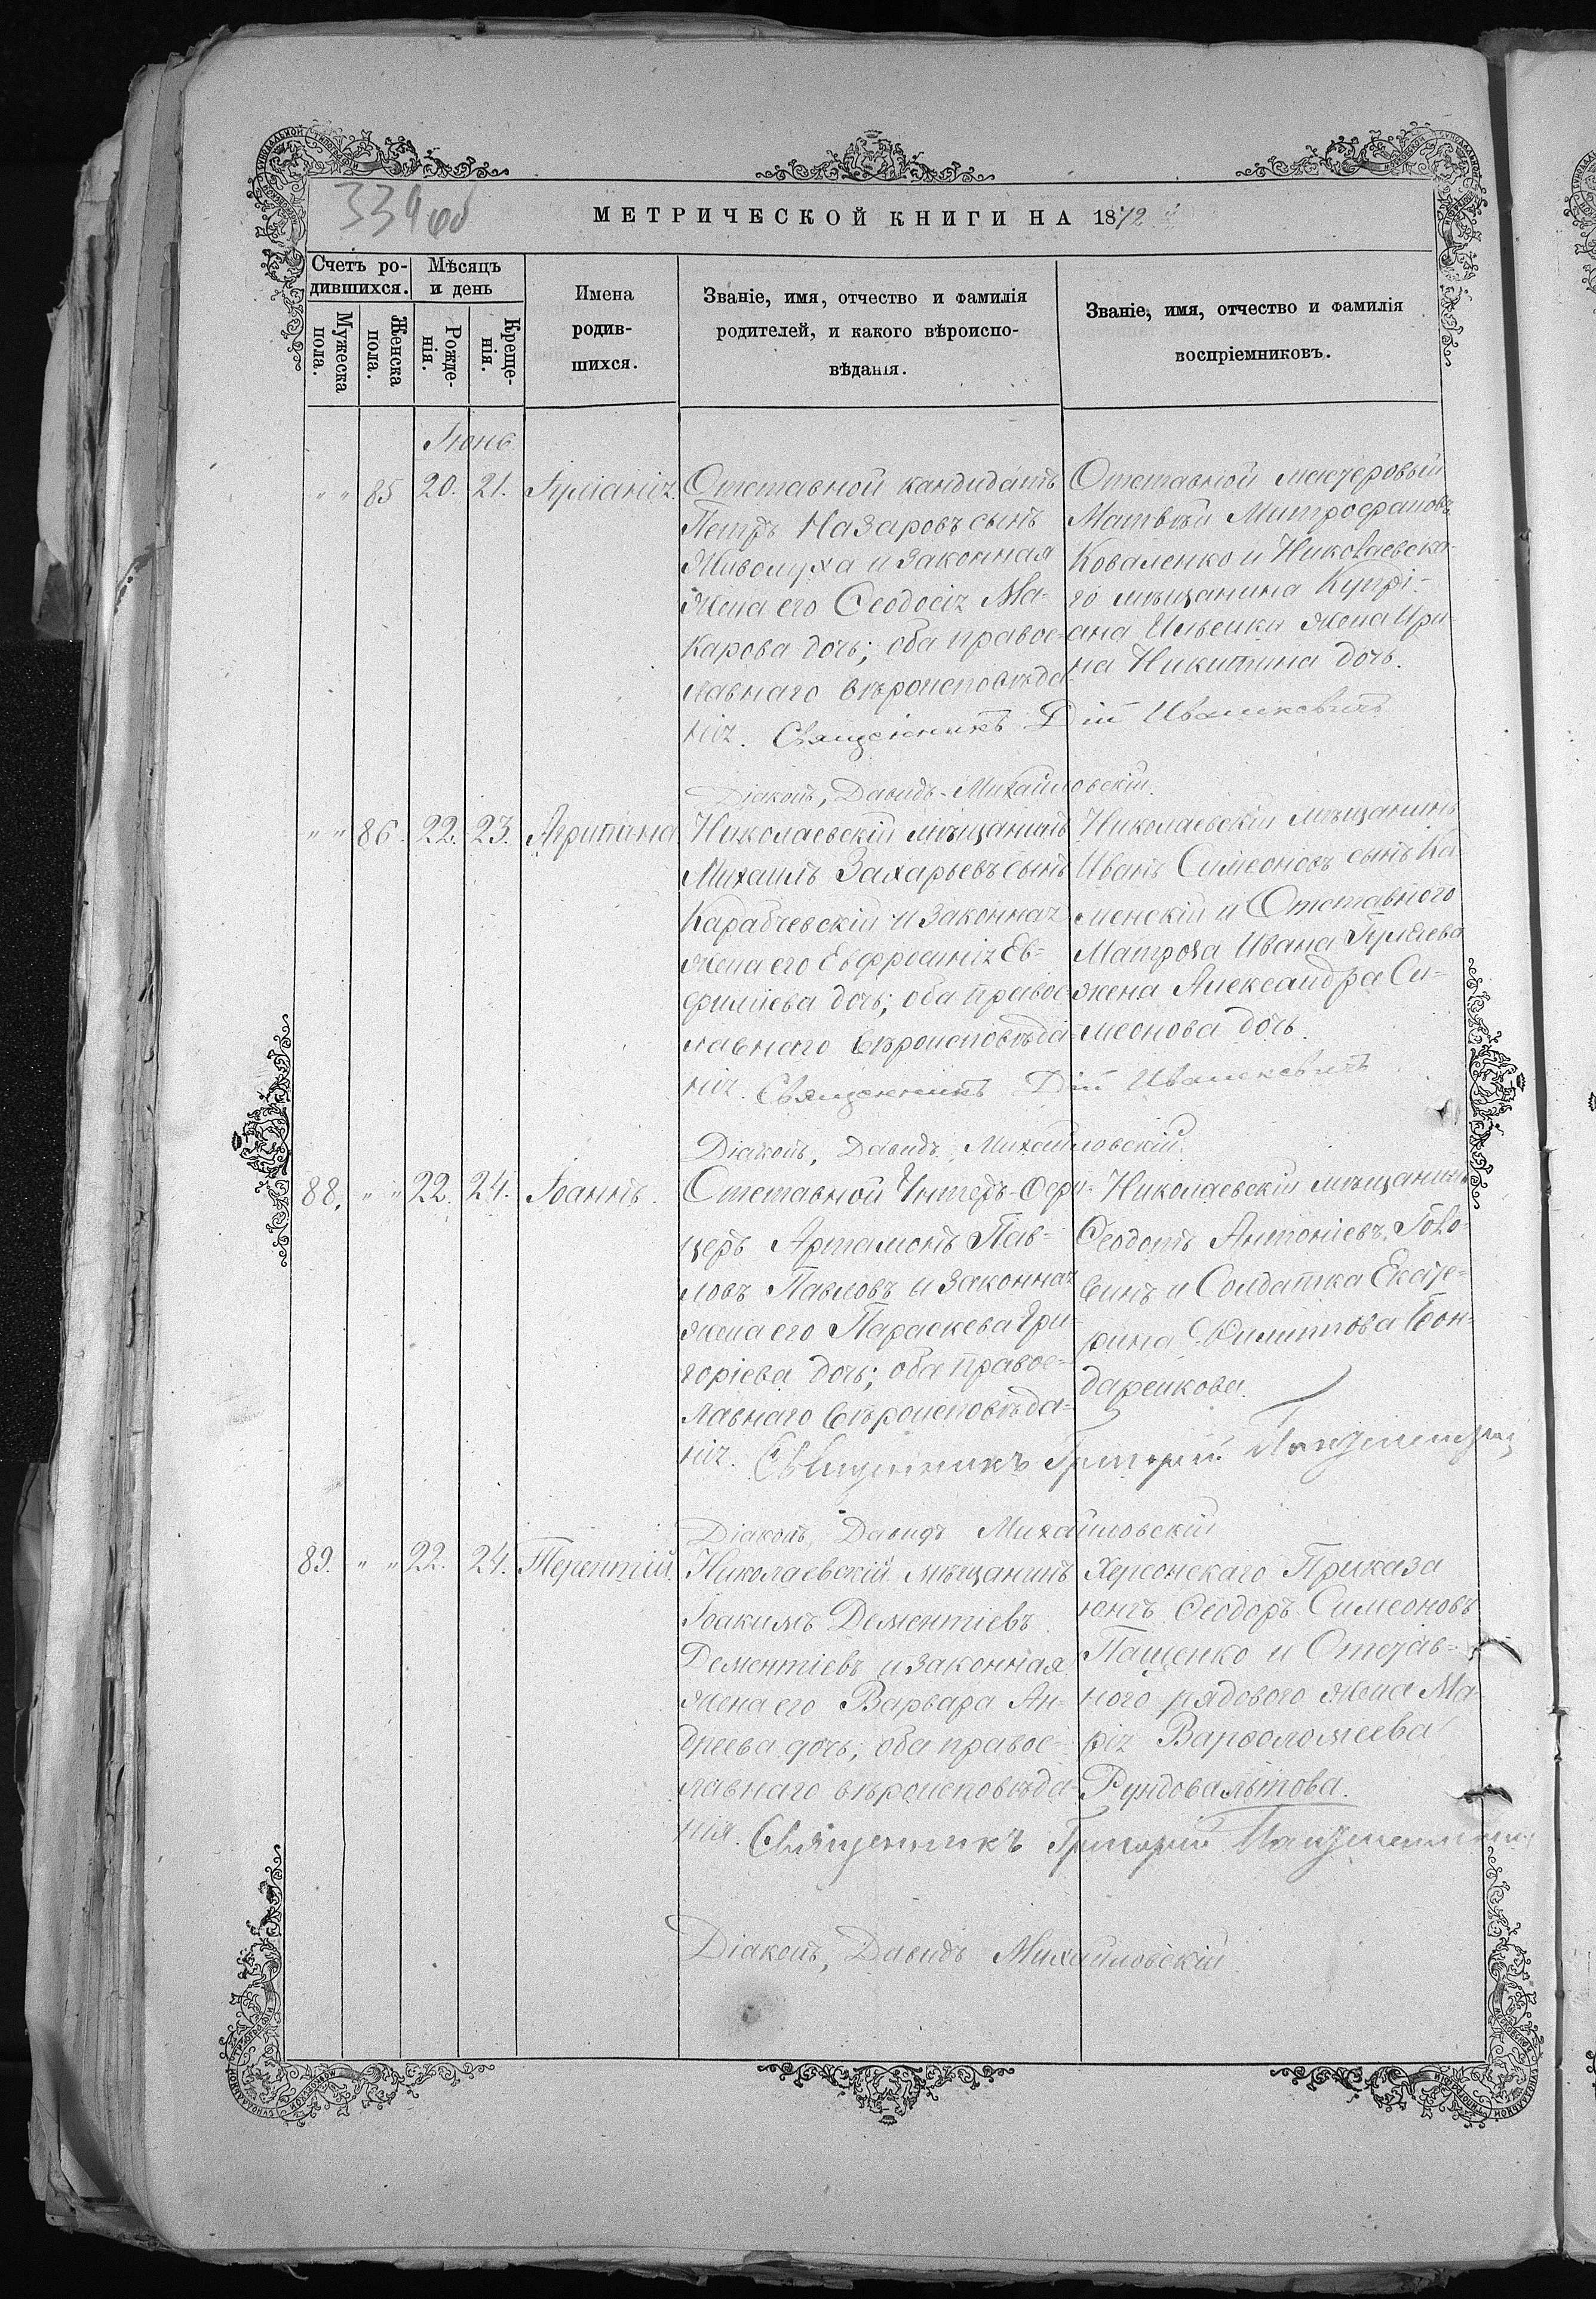 339об
МЕТРИЧЕСКОЙ КНИГИ НА 1872
Счетъ ро-
дившихся.
Мѣсяцъ
и день
Мужеска
пола.
Женска
пола.
Рожде-
нія.
Креще-
нія.
Имена
родив-
шихся.
Званіе, имя, отчество и фамилія
родителей, и какого вѣроиспо-
вѣданія.
Званіе, имя, отчество и фамилія
воспріемниковъ.
Іюнь
" " 85 20. 21. Іуліанія.
Отставной кандидатъ
Петръ Назаровъ сынъ
и законная
жена его Ѳеодосія Ма-
карова дочь; оба правос-
лавнаго вѣроисповѣда
нія. Священникъ Дій Ивашкевичъ
Отставной мастеровый
Матвѣй Митрофановъ
Коваленко и Николаевска-
го мѣщанина Купрі-
ана жена Ири-
на Никитина дочь.
Діаконъ, Давидъ Михайловскій.
" " 86. 22. 23. Агрипина
Николаевскій мѣщанинъ
Михаилъ Захарьевъ сынъ
Карабчевскій и законная
жена его Евфросинія Ев-
фиміева дочь; оба правос-
лавнаго вѣроисповѣда-
нія. Священникъ Дій Ивашкевичъ
Николаевскій мѣщанинъ
Иванъ Симеоновъ сынъ Ка-
менскій и Отставного
Матроса Ивана
жена Александра Си-
меонова дочь.
Діаконъ, Давидъ Михайловскій.
88. " " 22. 24. Іоаннъ.
Отставной Унтеръ-Офи-
церъ Артамонъ Пав-
ловъ Павловъ и законная
жена его Параскева Гри-
горіева дочь; оба правос-
лавнаго вѣроисповѣда-
нія. Священникъ Григорій
Николаевскій мѣщанинъ
Ѳеодотъ Антоніевъ Голо-
винъ и Солдатка Екате-
рина Филиппова Бон-
даренкова.
Діаконъ, Давидъ Михайловскій
89. " " 22. 24. Терентій.
Николаевскій мѣщанинъ
Іоакимъ Дементіевъ
Дементіевъ и законная
жена его Варвара Ан-
дреева дочь; оба правос-
лавнаго вѣроисповѣда-
нія. Священникъ Григорій
Херсонскаго Приказа
юнгъ Ѳеодоръ Симеоновъ
Пащенко и Отстав-
ного рядового жена Ма-
рія Варѳоломеева
Діаконъ, Давидъ Михайловскій.